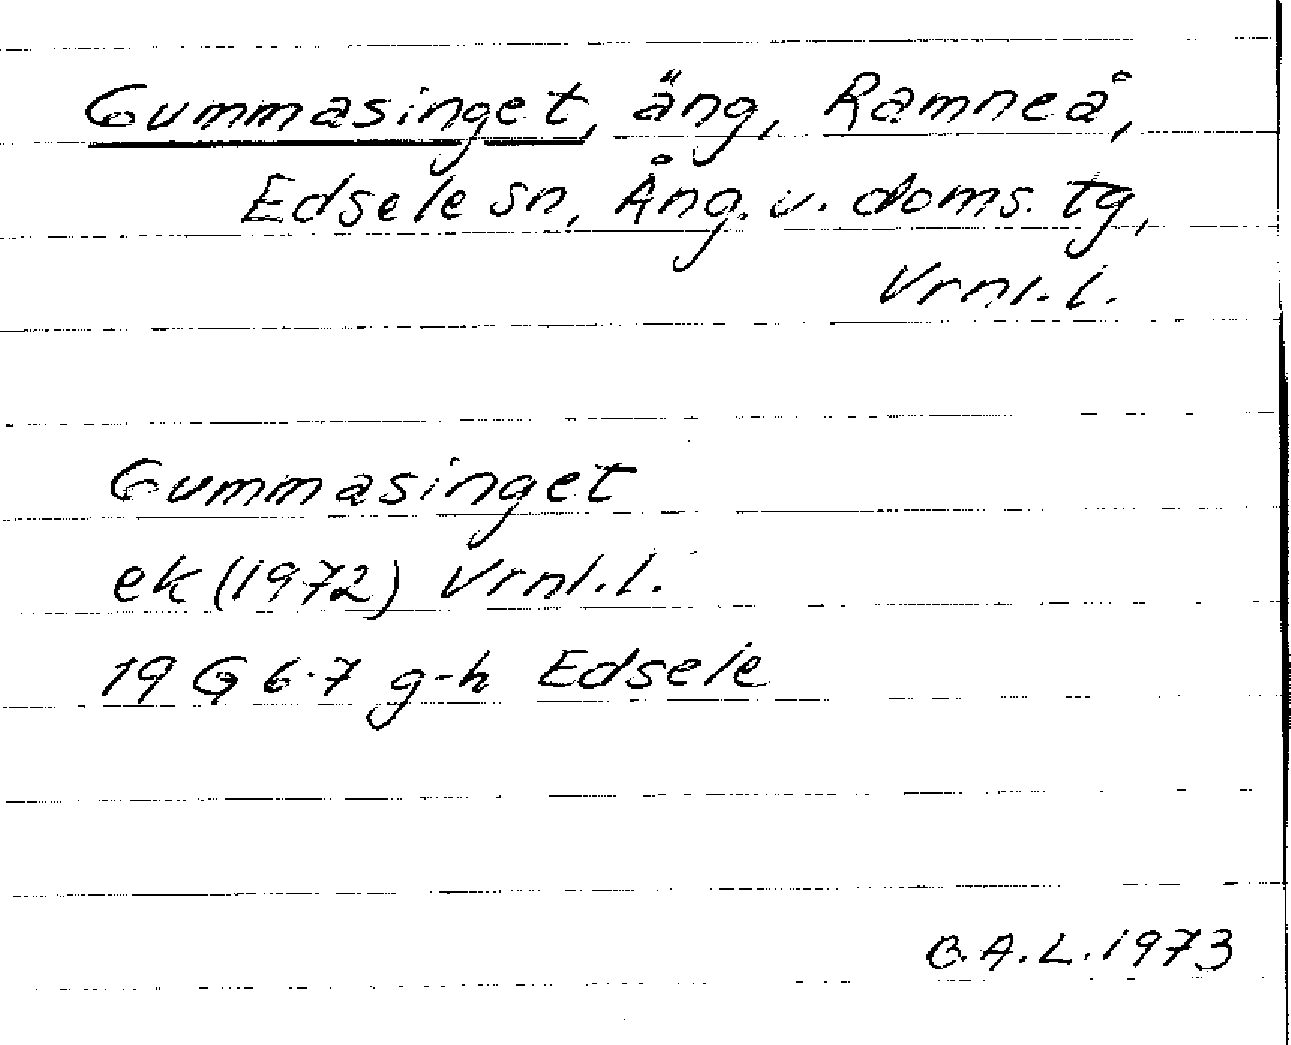 Gummasinget, äng, Ramneå,
Edsele sn, Ång. v. doms. tg,
Vrnl. l.
Gummasinget
ek (1972) Vrnl. l.
19 G 6-7 g-h Edsele
B. A. L. 1973